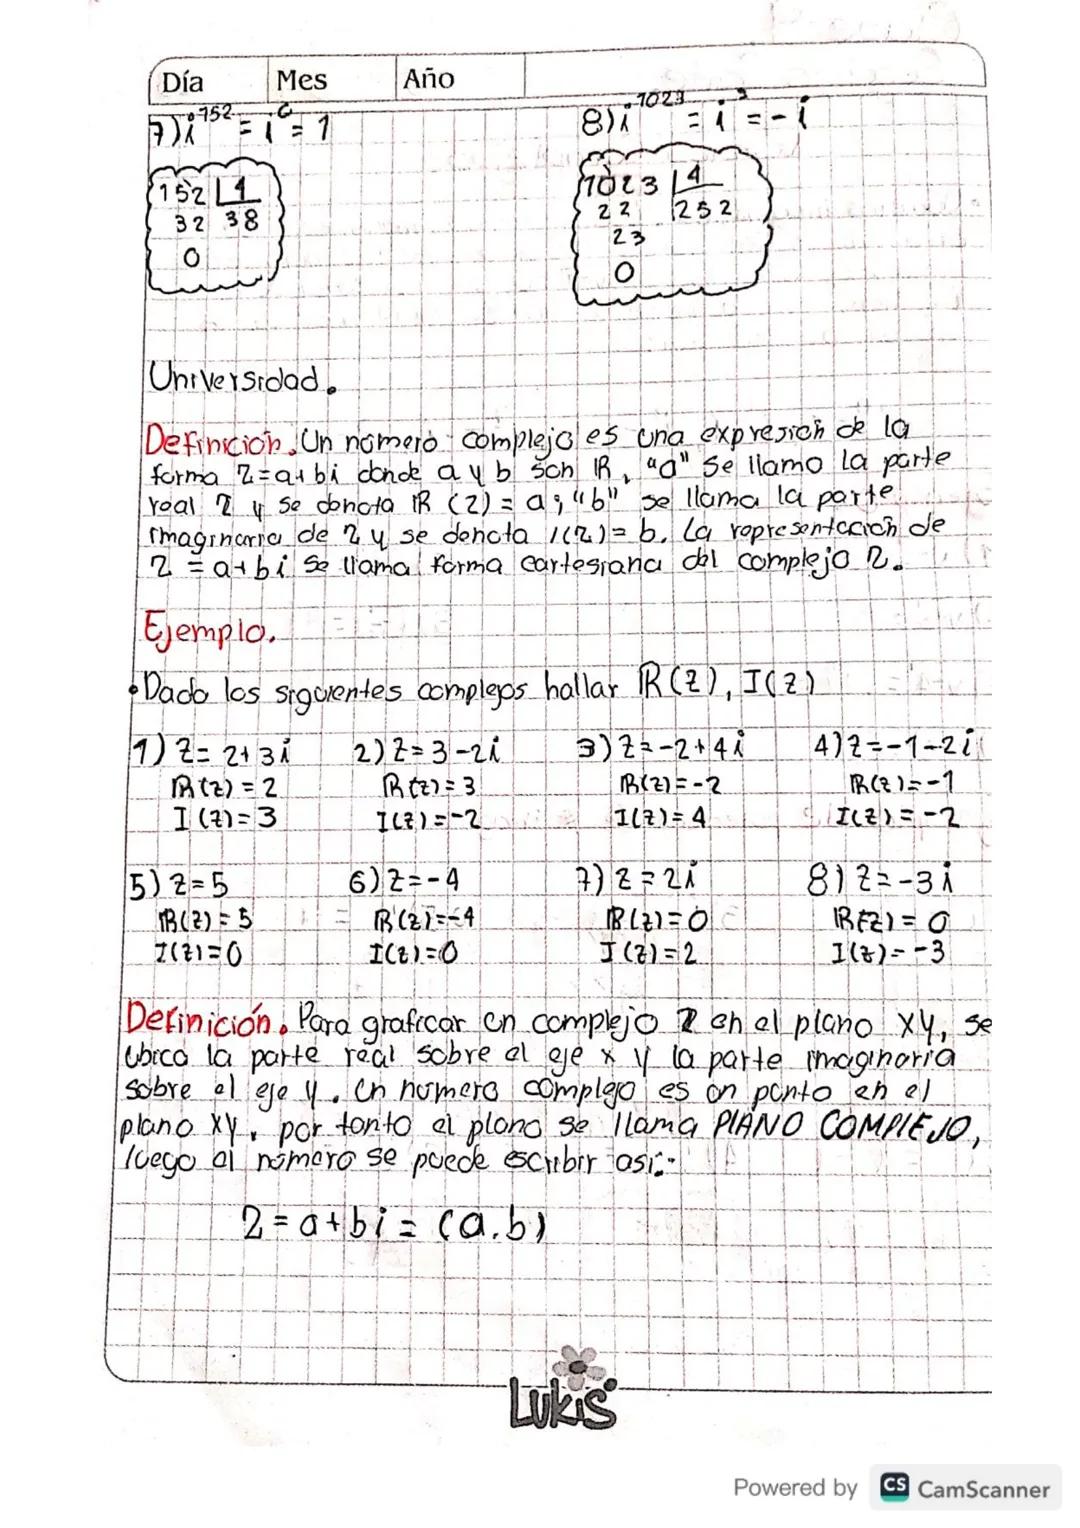 Día Mes Año
7) i^752 = i^0 = 1
8) i^1023 = i^3 = -i
152 4
32 38
0
1023 4
22 252
23
0
Universidad.
Definición. Un número complejo es una expresión de la
forma z=a+bi donde a y b son IR, "a" se llamo la parte
real z y se denota IR (z) = a; "b" se llama la parte
imaginaria de z y se denota I(z) = b. La representación de
z = a+bi se llama forma cartesiana del complejo z.
Ejemplo.
•Dado los siguientes complejos hallar IR(z), I(z)
1) z= 2+3i 2) z= 3-2i 3) z=-2+4i 4) z=-1-2i
IR(z) = 2 IR(z)= 3 IR(z)=-2 IR(z)=-1
I(z)=3 I(z)=-2 I(z)= 4 I(z)= -2
5) z=5 6) z=-4 7) z=2i 8) z=-3i
IR(z)= 5 IR(z)=-4 IR(z)=0 IR(z)= 0
I(z)=0 I(z)=0 I(z)=2 I(z)=-3
Definición. Para graficar un complejo z en el plano xy, se
ubica la parte real sobre el eje x y la parte imaginaria
sobre el eje y. Un número complejo es un punto en el
plano xy, por tanto el plano se llama PLANO COMPLEJO,
luego el número se puede escribir así:
z = a+bi = (a.b)
Lukis
Powered by CS CamScanner